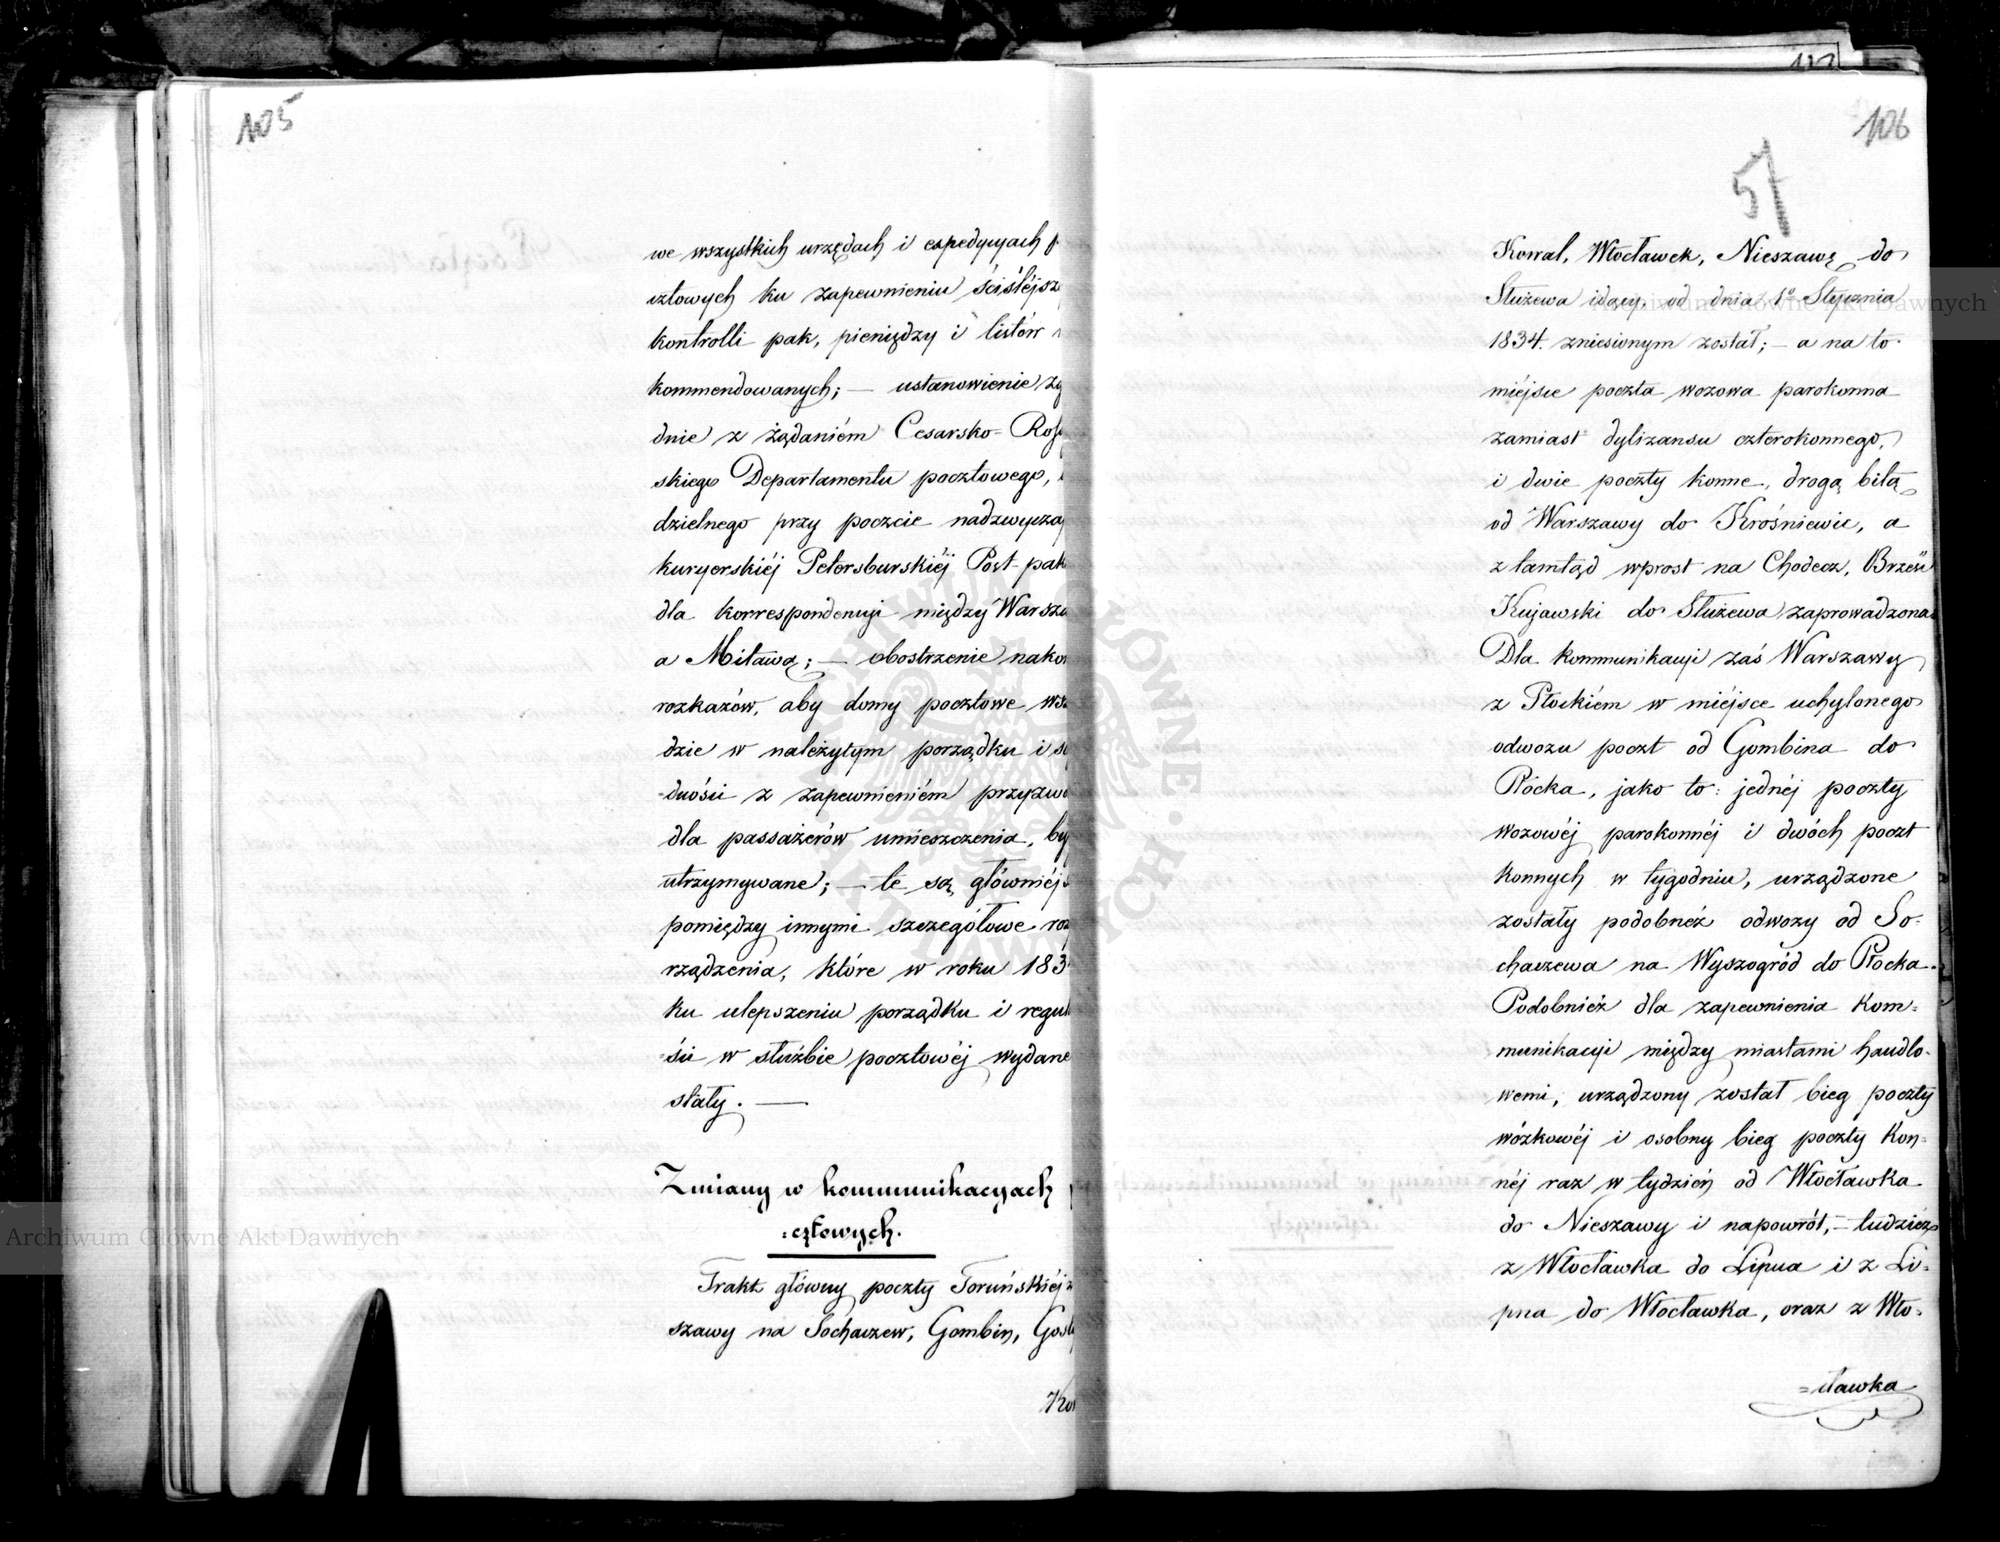 105
we wszystkich urzędach i expedycyach p
cztowych ku zapewnieniu ściślejsz
kontrolli pak, pieniędzy i listów
kommendowanych; — ustanowienie zg
dnie z żądaniém Cesarsko-Ross
skiego Departamentu pocztowego,
dzielnego przy poczcie nadzwyczaj
kuryerskiéj Petersburskiéj Post-pak
dla korrespondencyi między Warsza
a Mitawą; — obostrzenie nako
rozkazów, aby domy pocztowe wsz
dzie w należytym porządku i
dności z zapewnieniém przyzwo
dla passażerów umieszczenia, by
utrzymywane; — te są główniéjs
pomiędzy innymi szczegółowe roz
rządzenia, które w roku 183
ku ulepszeniu porządku i regul
ści w służbie pocztowéj wydane
stały. —
Zmiany w kommunikacyach p
=cztowych.
Trakt główny poczty Toruńskiéj z
szawy na Sochaczew, Gombin, Gost
Kow
106
57
Kowal, Włocławek, Nieszawę do
Służewa idący, od dnia 1º Stycznia
1834. zniesionym został; — a na to
miéjsce poczta wozowa parokonna
zamiast dyliżansu czterokonnego,
i dwie poczty konne, drogą bitą
od Warszawy do Krośniewic, a
z tamtąd wprost na Chodecz, Brześć
Kujawski do Służewa zaprowadzona.
Dla kommunikacyi zaś Warszawy
z Płockiém w miéjsce uchylonego
odwozu poczt od Gombina do
Płocka, jako to: jednéj poczty
wozowéj parokonnéj i dwóch poczt
konnych w tygodniu, urządzone
zostały podobnéż odwozy od So-
chaczewa na Wyszogród do Płocka.
Podobniéż dla zapewnienia kom=
munikacyi między miastami handlo-
wemi, urządzony został bieg poczty
wózkowéj i osobny bieg poczty kon=
néj raz w tydzień od Włocławka
do Nieszawy i napowrót, — tudzież
z Włocławka do Lipna i z Li=
pna do Włocławka, oraz z Wło=
=cławka
Archiwum Główne Akt Dawnych
Archiwum Główne Akt Dawnych
ARCHIWUM GŁÓWNE AKT DAWNYCH